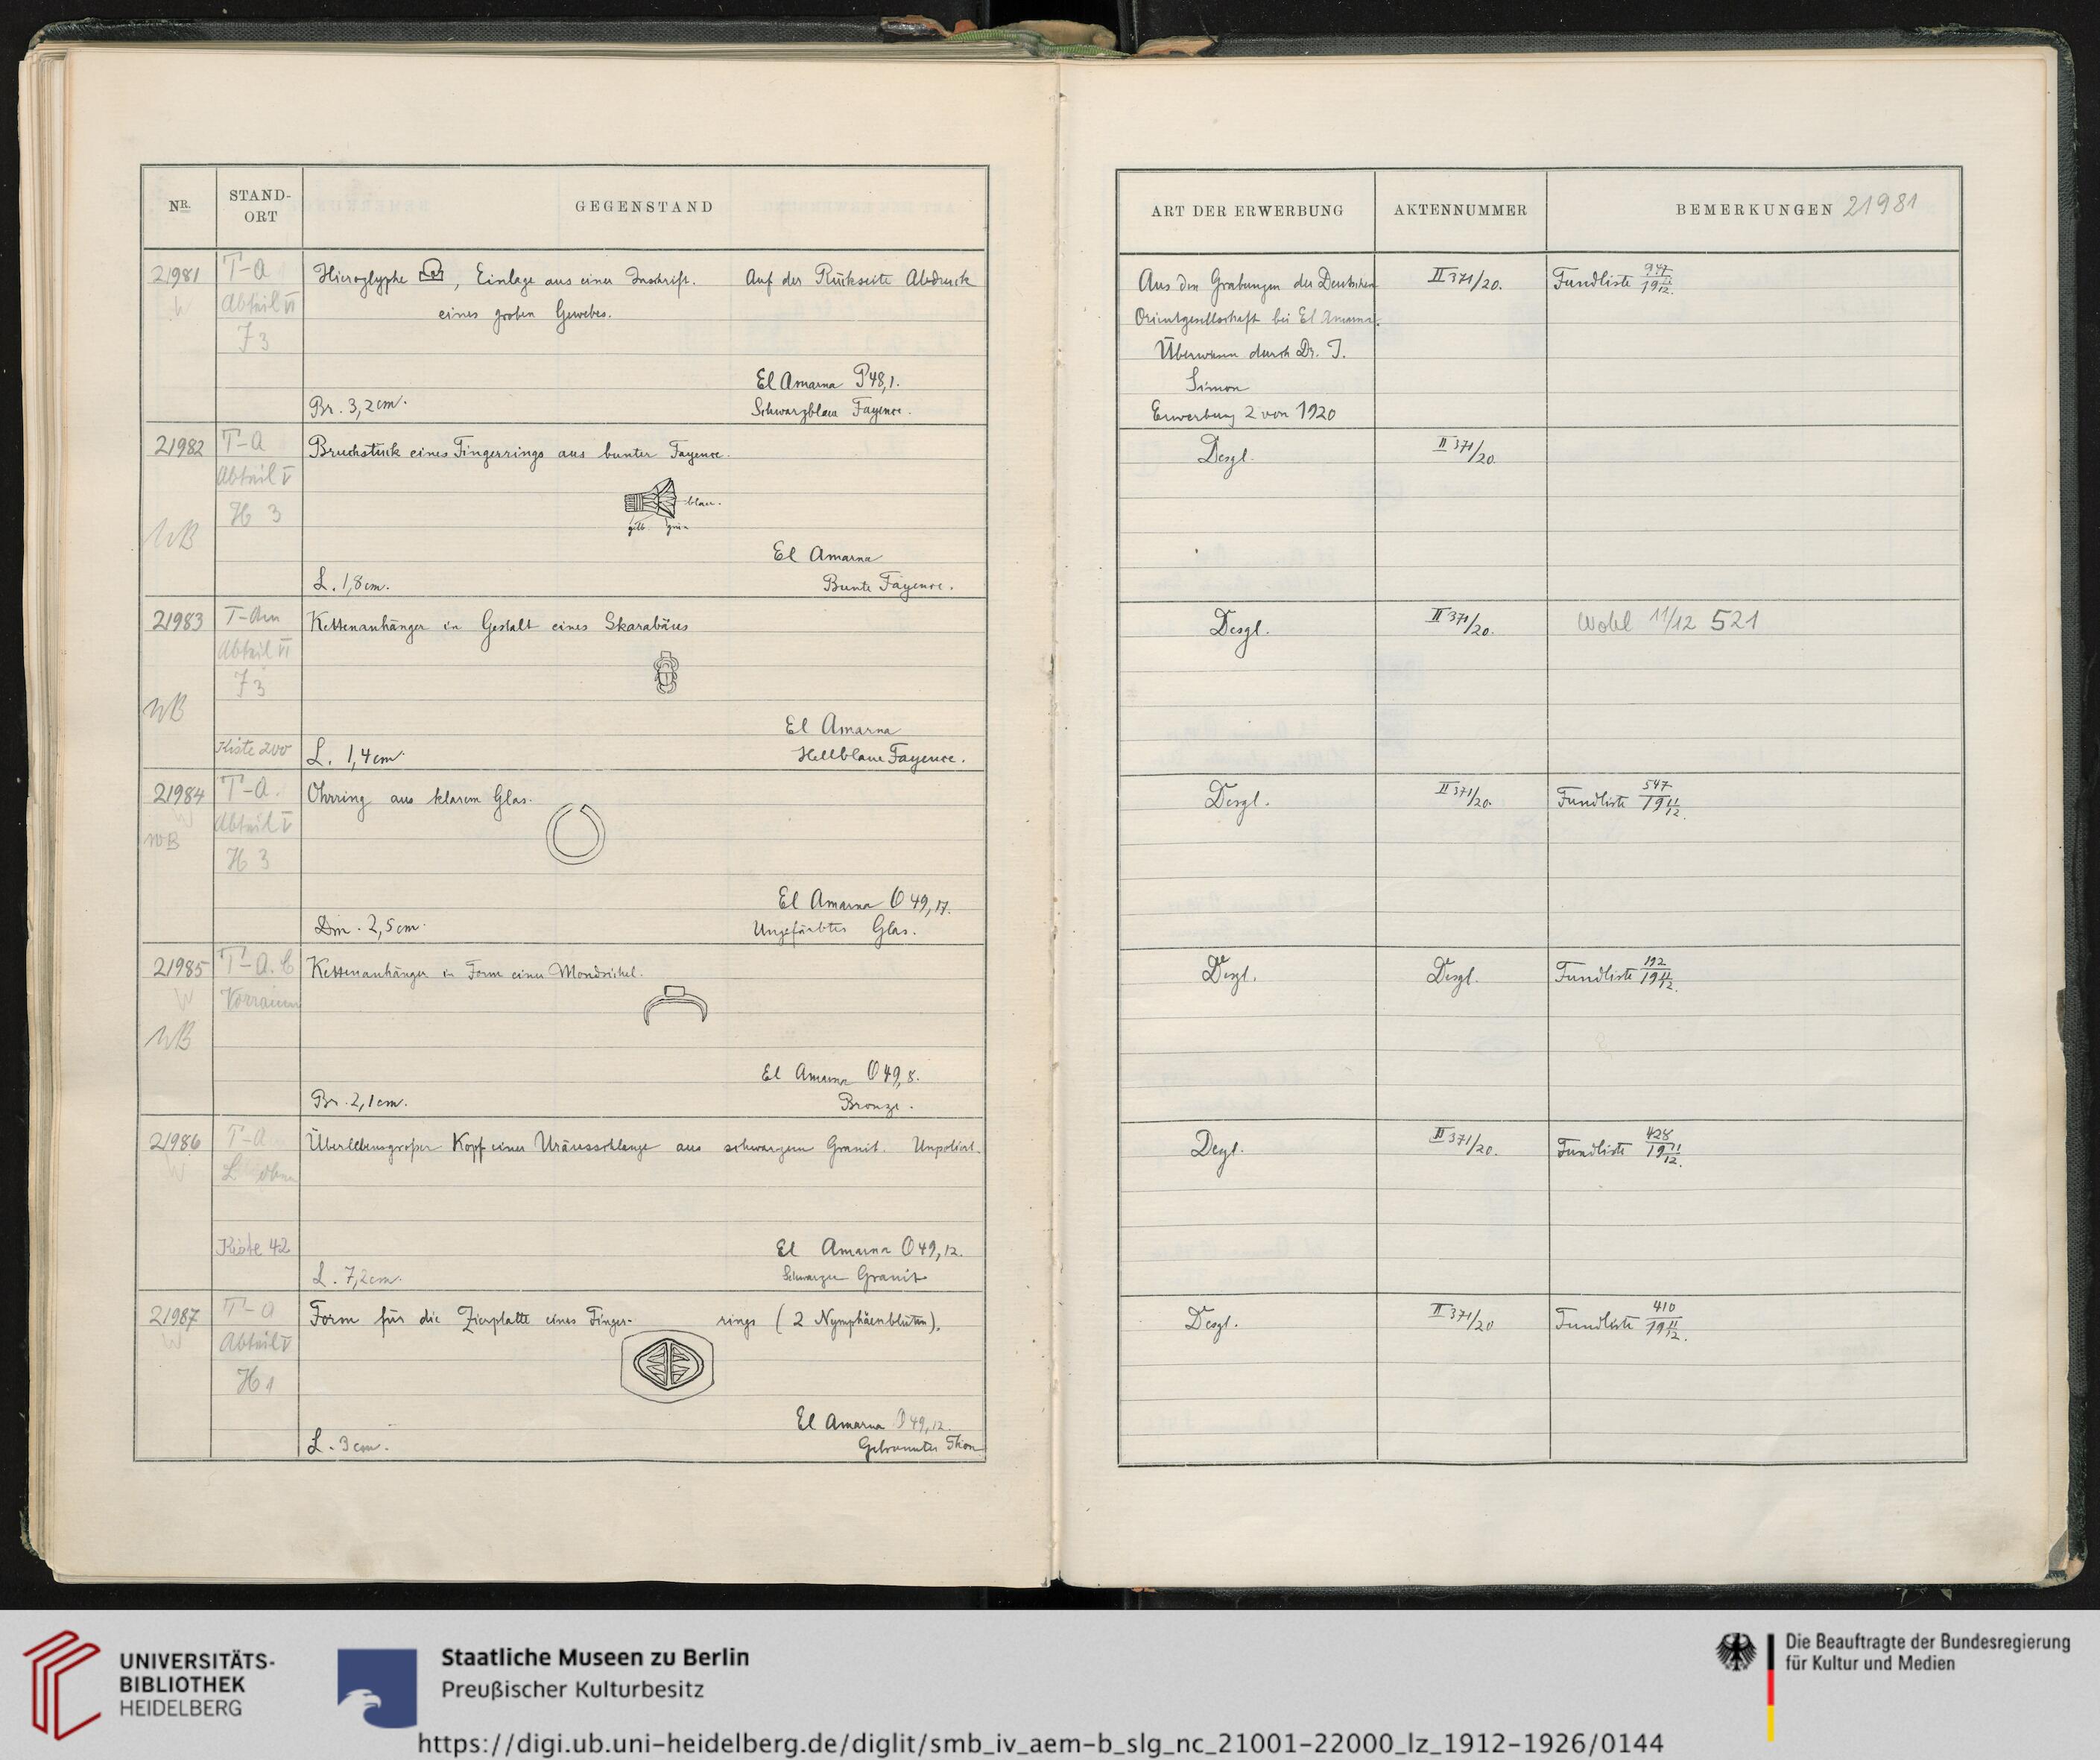 NR.
STAND-
ORT
GEGENSTAND
21981
T-A
Abteil VI
J 3
W
Hieroglyphe , Einlage aus einer Inschrift. Auf der Rückseite Abdruck
eines groben Gewebes.
El Amarna P48,1.
Br. 3,2 cm. Schwarzblaue Fayence.
21982
T-A
Abteil V
H 3
WB
Bruchstück eines Fingerrings aus bunter Fayence.
blau.
gelb grün
El Amarna
L. 1,8 cm. Bunte Fayence.
21983
T-Am
Abteil VI
J 3
WB
Kiste 200
Kettenanhänger in Gestalt eines Skarabäus
El Amarna
L. 1,4 cm. Hellblaue Fayence.
21984
T-A.
W
Abteil V
WB
H 3
Ohrring aus klarem Glas.
El Amarna O 49,17.
Dm. 2,5 cm. Ungefärbtes Glas.
21985
T-A. C
W
Vorraum
WB
Kettenanhänger in Form einer Mondsichel.
El Amarna O 49,8.
Br. 2,1 cm. Bronze.
21986
T-A
W
L oben
Kiste 42
Überlebensgroßer Kopf einer Uräusschlange aus schwarzem Granit. Unpoliert.
El Amarna O 49,12.
L. 7,2 cm. Schwarzer Granit
21987
T-A
W
Abteil V
H 1
Form für die Zierplatte eines Finger- rings (2 Nymphäenblüten).
El Amarna O 49,12.
L. 3 cm. Gebrannter Thon
ART DER ERWERBUNG
AKTENNUMMER
BEMERKUNGEN 21981
Aus den Grabungen der Deutschen II 371/20. Fundliste 947/1912.
Orientgesellschaft bei El Amarna.
Überwiesen durch Dr. J.
Simon
Erwerbung 2 von 1920
Desgl. II 371/20.
Desgl. II 371/20. Wohl 11/12 521
Desgl. II 371/20. Fundliste 547/1911/12.
Desgl. Desgl. Fundliste 192/1911/12.
Desgl. II 371/20. Fundliste 428/1911/12.
Desgl. II 371/20 Fundliste 410/1911/12.
UNIVERSITÄTS-
BIBLIOTHEK
HEIDELBERG
Staatliche Museen zu Berlin
Preußischer Kulturbesitz
Die Beauftragte der Bundesregierung
für Kultur und Medien
https://digi.ub.uni-heidelberg.de/diglit/smb_iv_aem-b_slg_nc_21001-22000_lz_1912-1926/0144